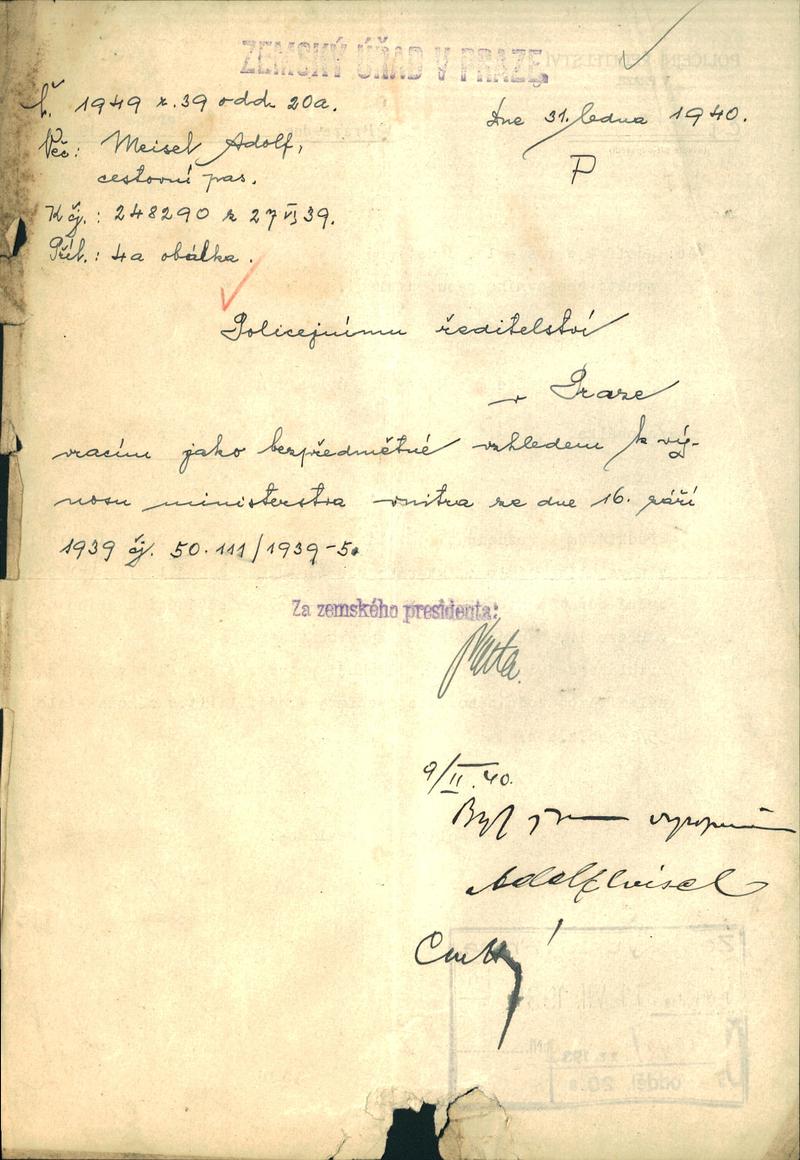 ZEMSKÝ ÚŘAD V PRAZE
Č. 1949 z. 39 odd. 20a.
Dne 31. ledna 1940.
Věc: Meisel Adolf,
P
cestovní pas.
K čj.: 248290 z 27/VI 39.
Příl.: 4 a obálka.
Policejnímu ředitelství
v Praze
vracím jako bezpředmětné vzhledem k vý-
nosu ministerstva vnitra ze dne 16. září
1939 čj. 50.111/1939-5.
Za zemského presidenta:
9/II.40.
Byl jsem
Adolf Meisel
odděl. 20.a